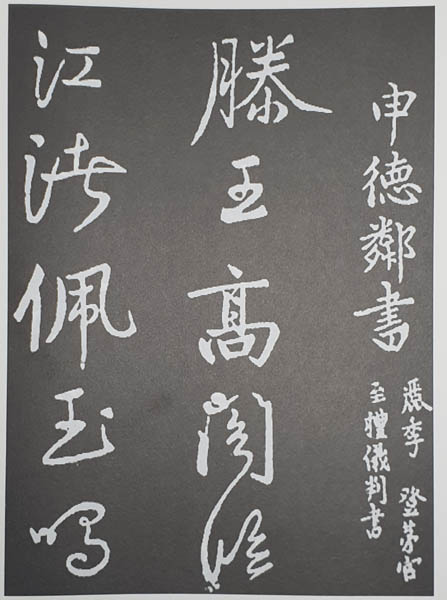 申德鄰書
麗季 登第官
至禮儀判書
滕王髙閣臨
江渚佩玉鳴